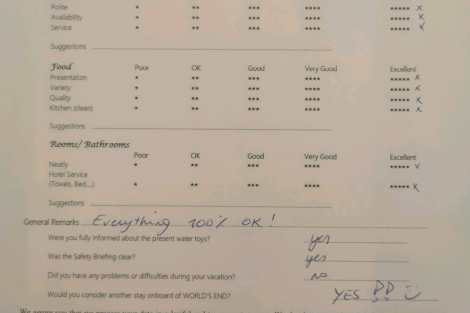 Polite * ** *** **** ***** x
Availability * ** *** **** ***** x
Service * ** *** **** ***** x
Suggestions
Food Poor OK Good Very Good Excellent
Presentation * ** *** **** ***** x
Variety * ** *** **** ***** x
Quality * ** *** **** ***** x
Kitchen (clean) * ** *** **** ***** x
Suggestions
Rooms/ Bathrooms
Poor OK Good Very Good Excellent
Neatly * ** *** **** ***** x
Hotel Service
(Towels, Bed,...) * ** *** **** ***** x
Suggestions
General Remarks Everything 100% OK!
Were you fully informed about the present water toys? yes
Was the Safety Briefing clear? yes
Did you have any problems or difficulties during your vacation? no
Would you consider another stay onboard of WORLD'S END? YES